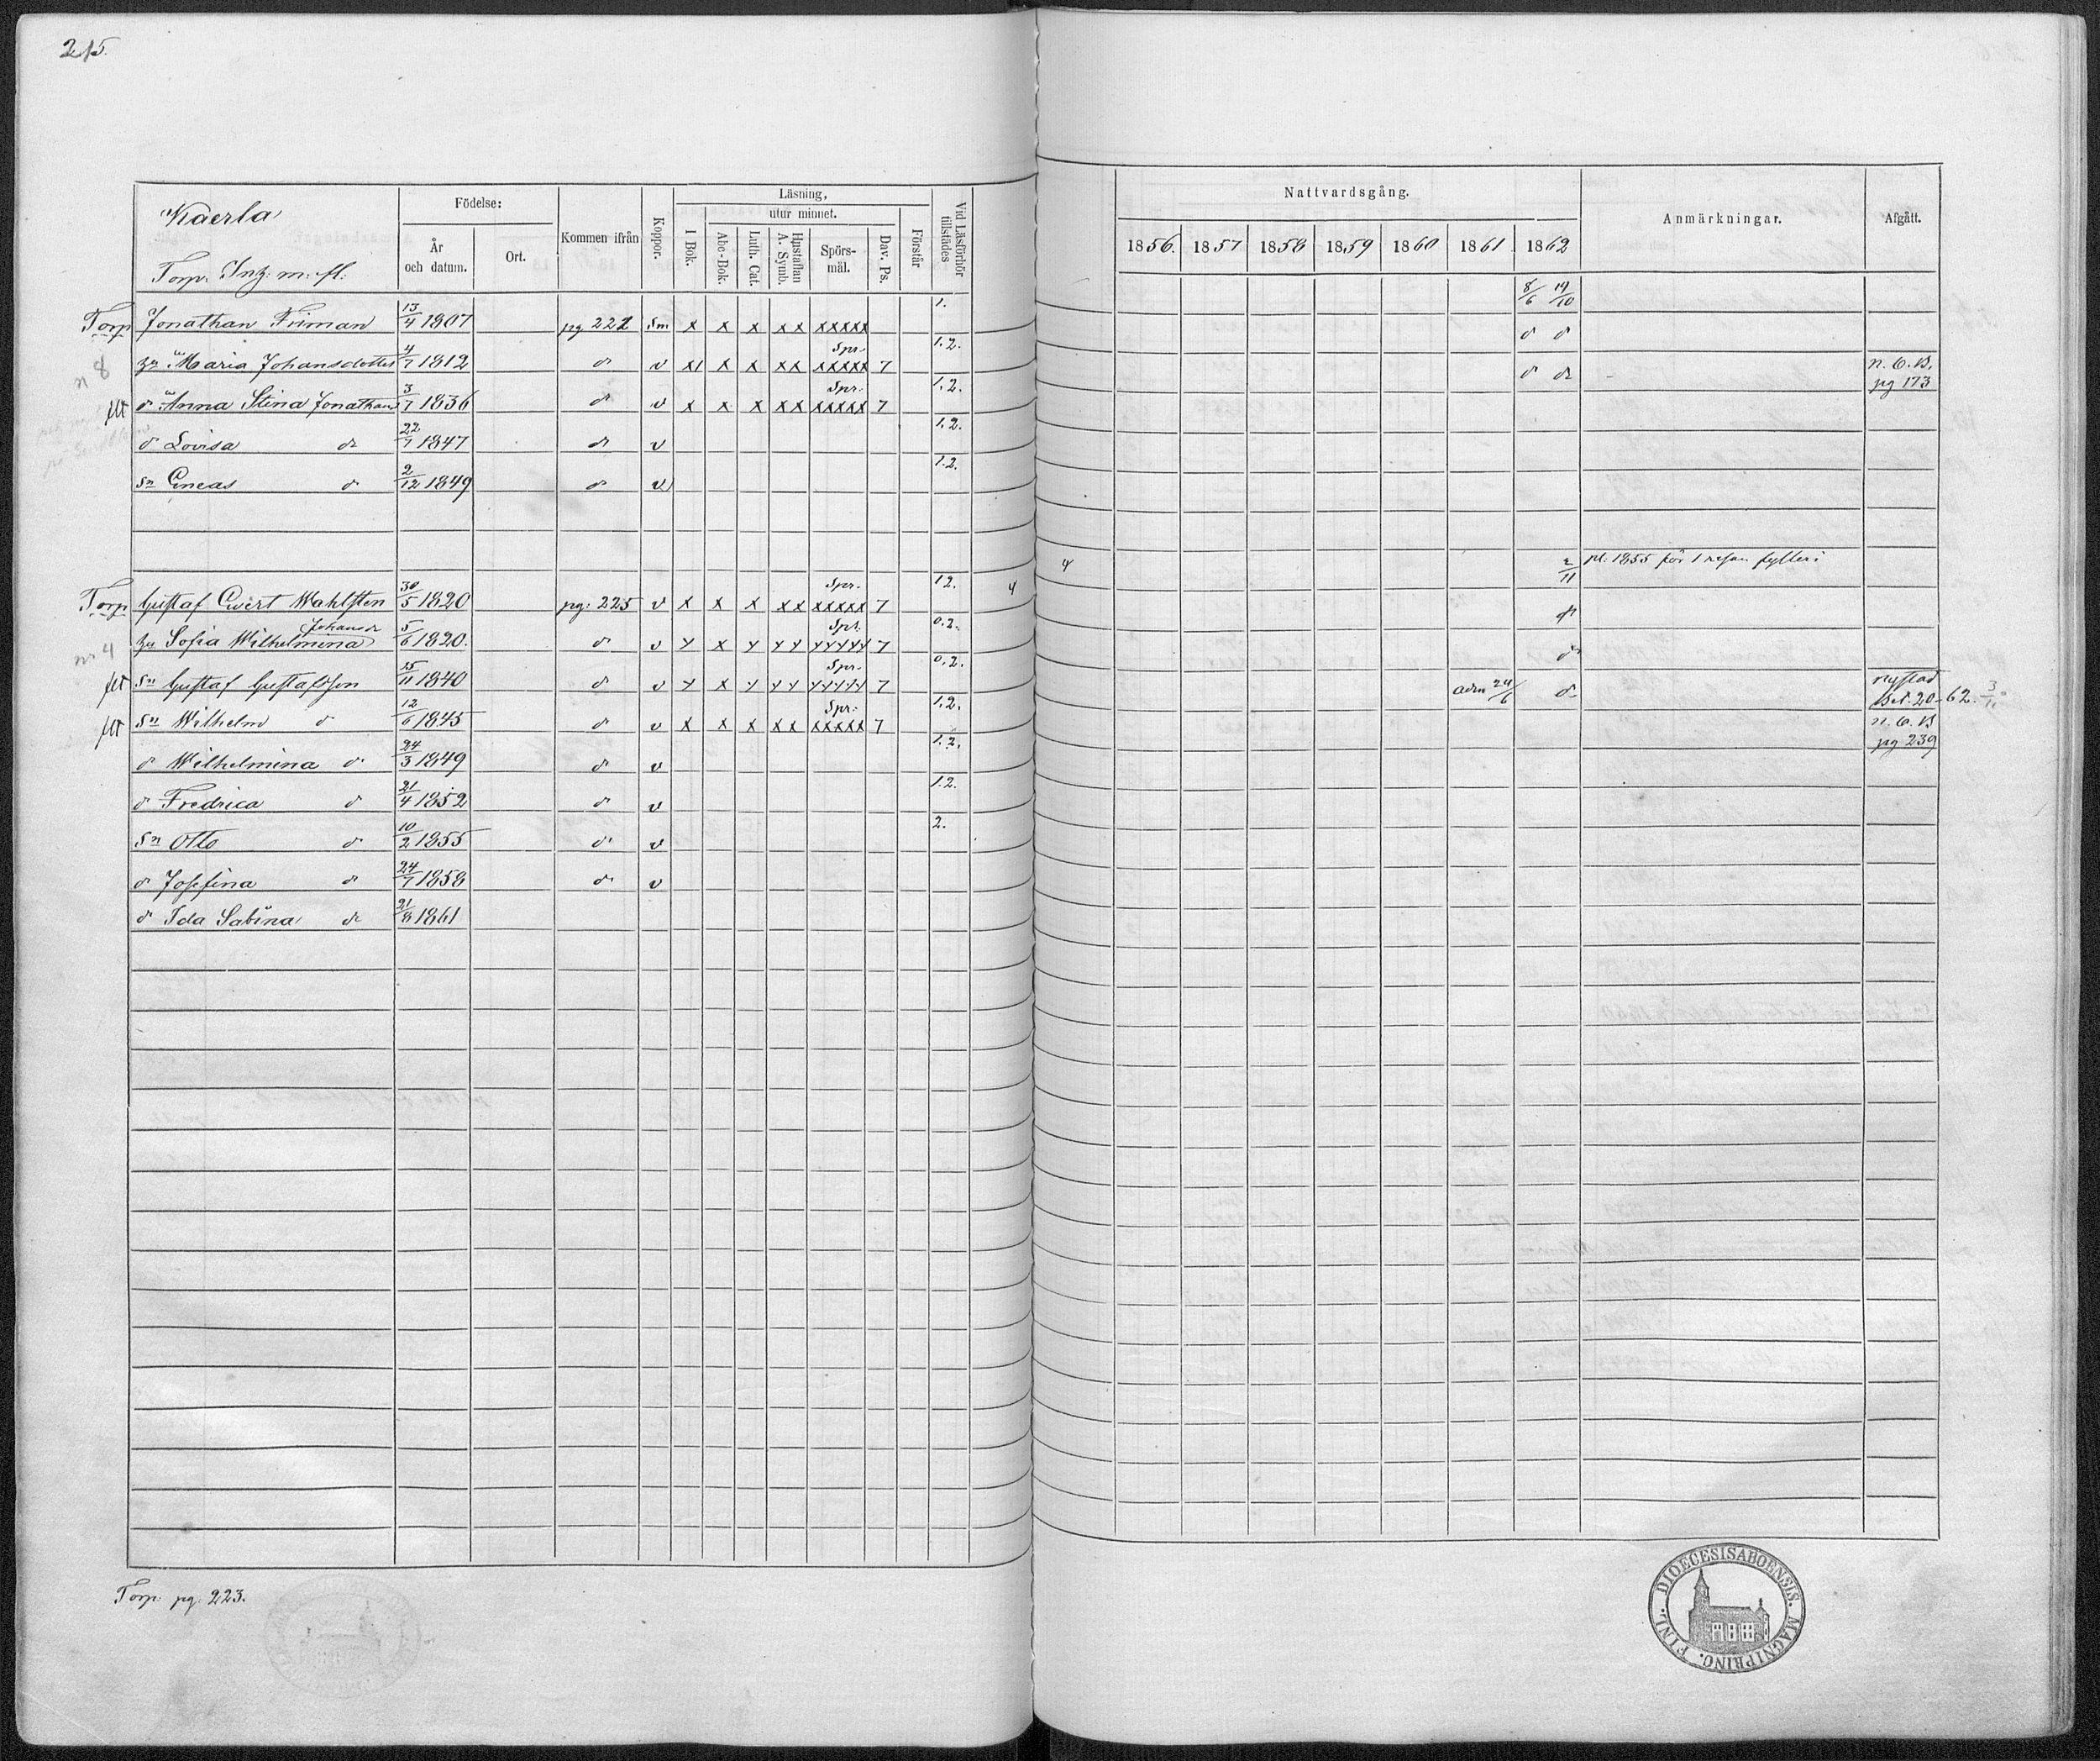 215.
Kaerla
Torp. Inh: m: fl.
Födelse:
År och datum.
Ort.
Kommen ifrån
Koppor.
Läsning,
I Bok.
utur minnet.
Abc-Bok.
Luth. Cat.
Hustaflan A. Symb.
Spörs-mål.
Dav. Ps.
Förstår
Vid Läsförhör tillstädes
Nattvardsgång.
1856. 1857 1858 1859 1860 1861 1862
Anmärkningar.
Afgått.
Torp Jonathan Friman 13/4 1807 pg 222 Sm x x x xx xxxxx 1. 8/6 19/10
n 8
hu Maria Johansdotter 4/7 1812 d:o v xi x x xx Spr. xxxxx 7 1.2. d d
flt d Anna Stina Jonathans 3/7 1836 d:o v x x x xx Spr. xxxxx 7 1.2. d do n. C. B. pg 173
d Lovisa do 22/7 1847 do v 1.2.
Sn Eneas d 2/12 1849 d v 1.2.
Torp Gustaf Evert Wahlsten 30/5 1820 pg. 225 v x x x xx Spr. xxxxx 7 12. 4 4 2/11 pl. 1855 för 1 resan fylleri
nr 4
hu Sofia Wilhelmina Johansdr 5/6 1820. d v y x y yy Spr. yyyyy 7 0.2. d
flt Sn Gustaf Gustafsson 15/11 1840 d v y x y yy Spr. yyyyy 7 0.2. d nystad Bet. 20 62. 3/11
flt Sn Wilhelm d 12/6 1845 d v x x x xx Spr. xxxxx 7 1.2. adm 24/6 d n. C. B pg 239
d Wilhelmina d 24/3 1849 d v 1.2.
d Fredrica d 21/4 1852 d v 1.2.
Sn Otto d 10/2 1855 d v 2.
d Josefina d 24/7 1858 d v
d Ida Sabina do 21/8 1861
Torp. pg. 223.
DIOECESIS ABOENSIS. MAGNI PRINC. FINL.